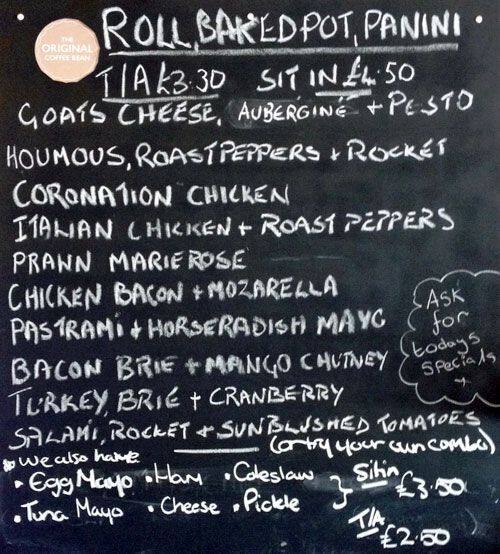 THE
ORIGINAL
COFFEE BEAN
ROLL, BAKED POT, PANINI
T/A £3.30 SIT IN £4.50
GOATS CHEESE, AUBERGINE + PESTO
HOUMOUS, ROAST PEPPERS + ROCKET
CORONATION CHICKEN
ITALIAN CHICKEN + ROAST PEPPERS
PRAWN MARIEROSE
CHICKEN BACON + MOZARELLA
PASTRAMI + HORSERADISH MAYO
BACON BRIE + MANGO CHUTNEY
TURKEY, BRIE + CRANBERRY
SALAMI, ROCKET + SUNBLUSHED TOMATOES
(or try your own combo)
Ask
for
todays
specials
→
* we also have
• Egg Mayo • Ham • Coleslaw
• Tuna Mayo • Cheese • Pickle
} Sit in £3.50
T/A £2.50